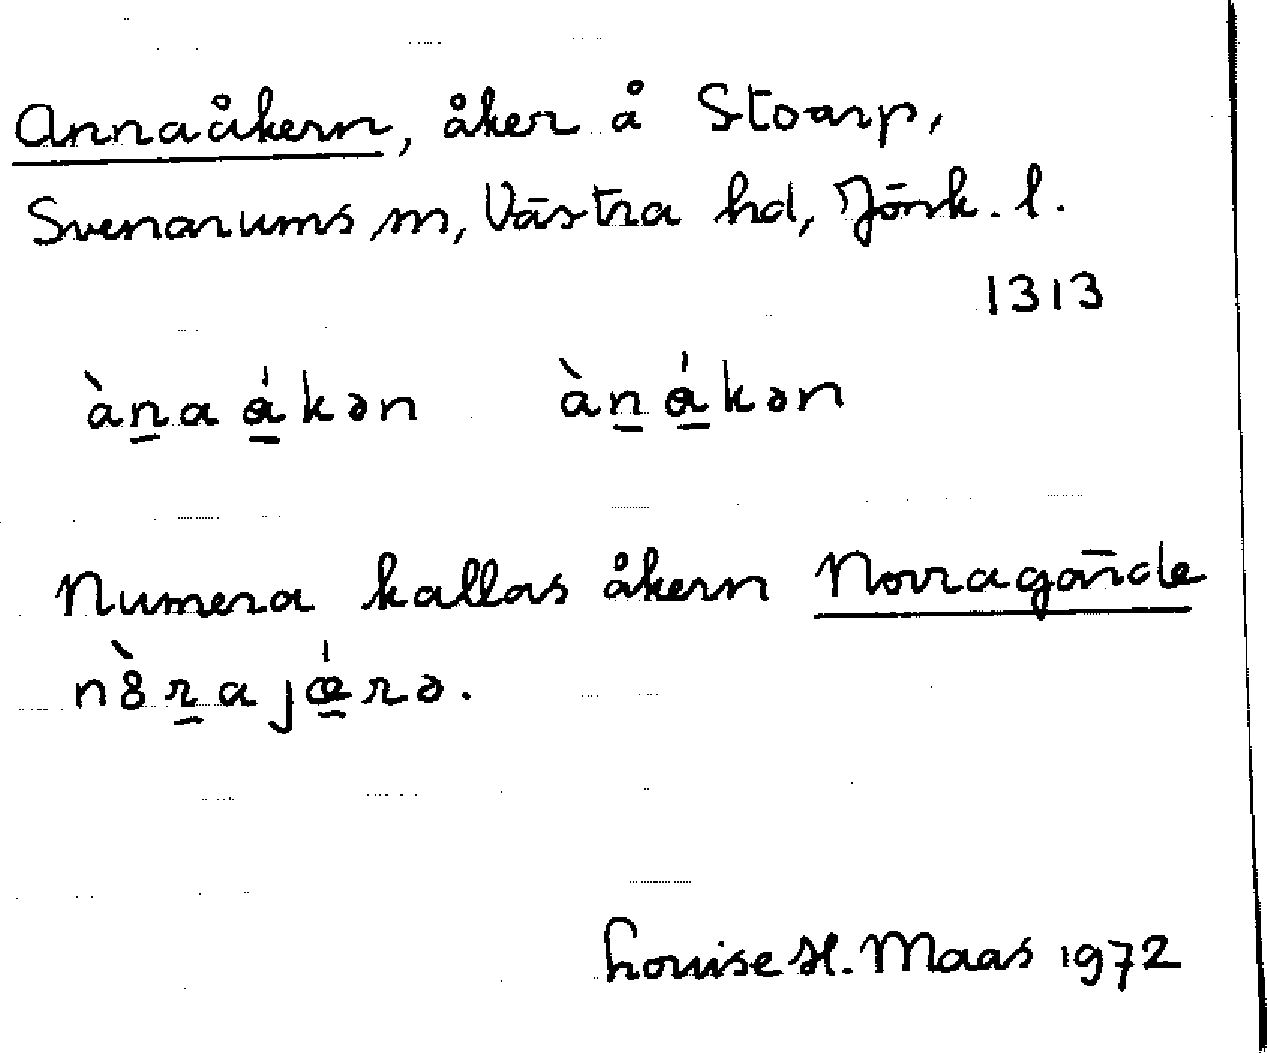 Annaåkern, åker å Stoarp,
Svenarums sn, Västra hd, Jönk. l.
1313
àn̲a á̲kən àn̲á̲kən
Numera kallas åkern Norragärde
nòr̲ajǽ̲rə.
Louise H. Maas 1972